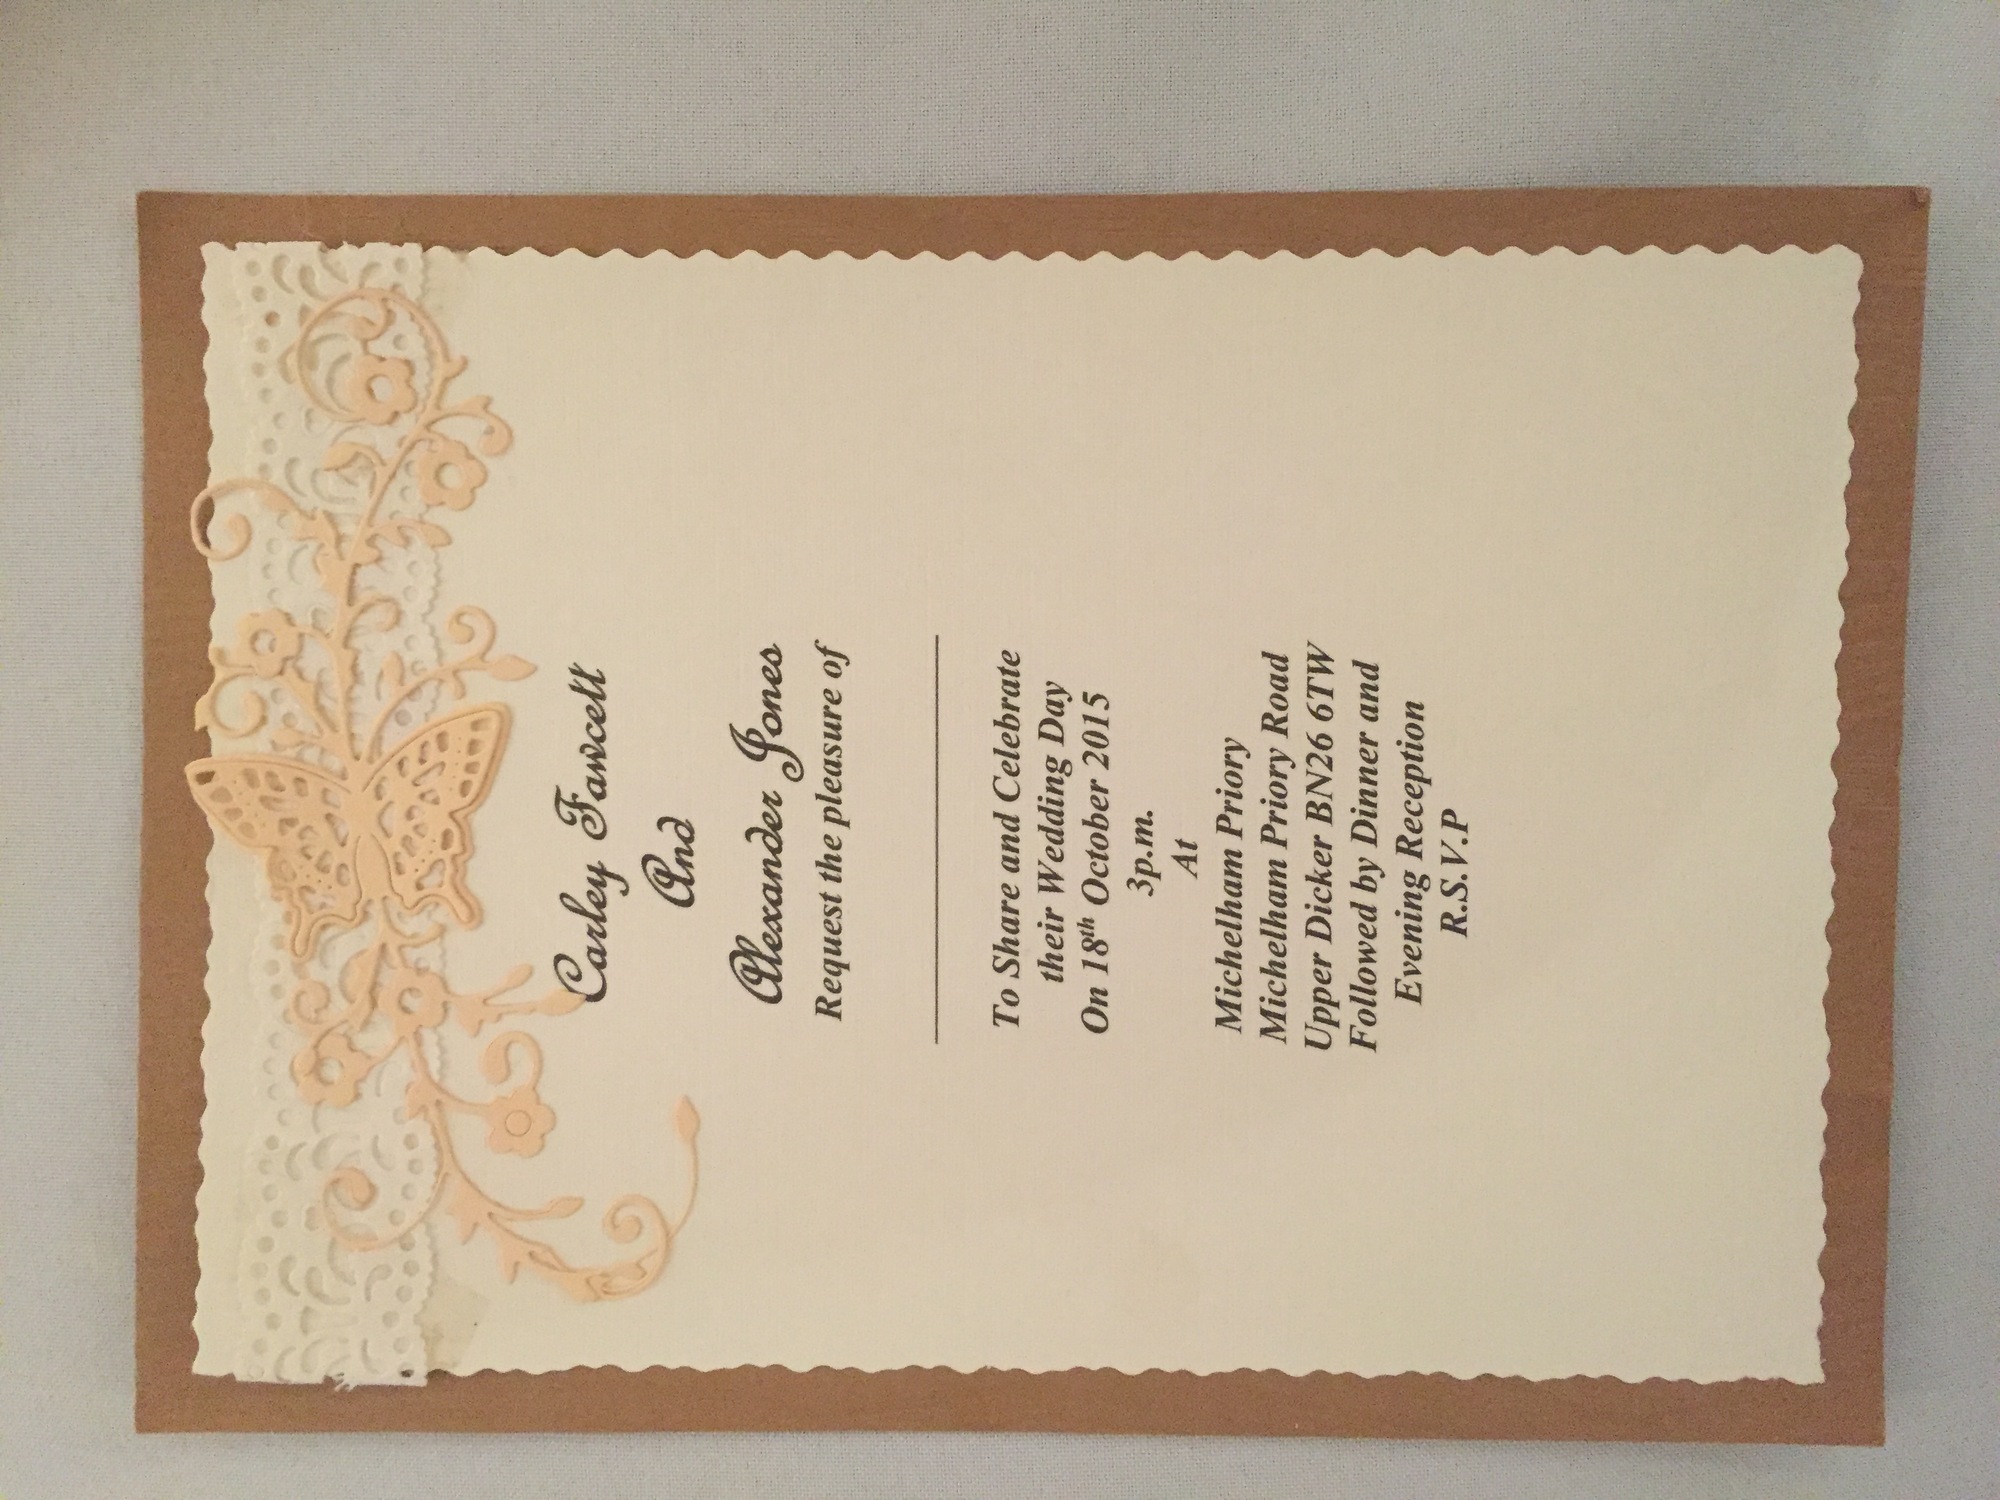 Carley Fawcett
And
Alexander Jones
Request the pleasure of
To Share and Celebrate
their Wedding Day
On 18th October 2015
3p.m.
At
Michelham Priory
Michelham Priory Road
Upper Dicker BN26 6TW
Followed by Dinner and
Evening Reception
R.S.V.P